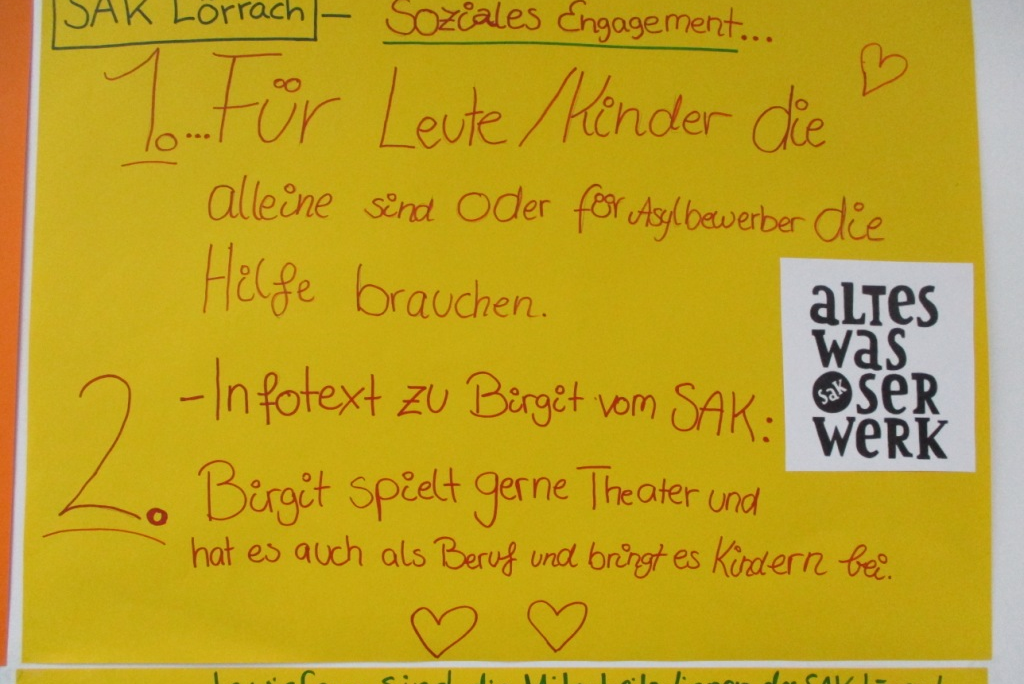 SAK Lörrach – Soziales Engagement...
1. ...Für Leute/Kinder die
alleine sind oder für Asylbewerber die
Hilfe brauchen.
aLTES
was
sak oSER
weRK
2. -Infotext zu Birgit vom SAK:
Birgit spielt gerne Theater und
hat es auch als Beruf und bringt es Kindern bei.